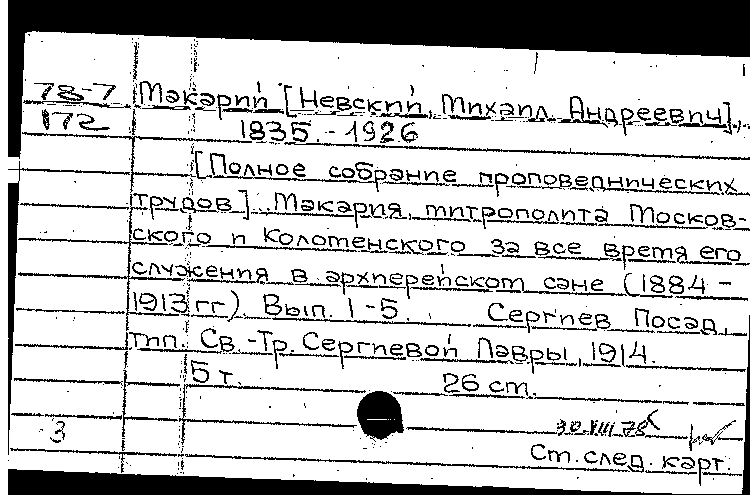 78-7 Макарий [Невский, Михаил Андреевич],
172 1835.-1926
[Полное собрание проповеднических
трудов]. Макария, митрополита Москов-
ского и Коломенского за все время его
служения в архиерейском сане (1884-
1913 гг). Вып. 1-5. Сергиев Посад,
тип. Св.-Тр. Сергиевой Лавры, 1914.
5 т. 26 см.
30.VIII 78
3
См. след. карт.